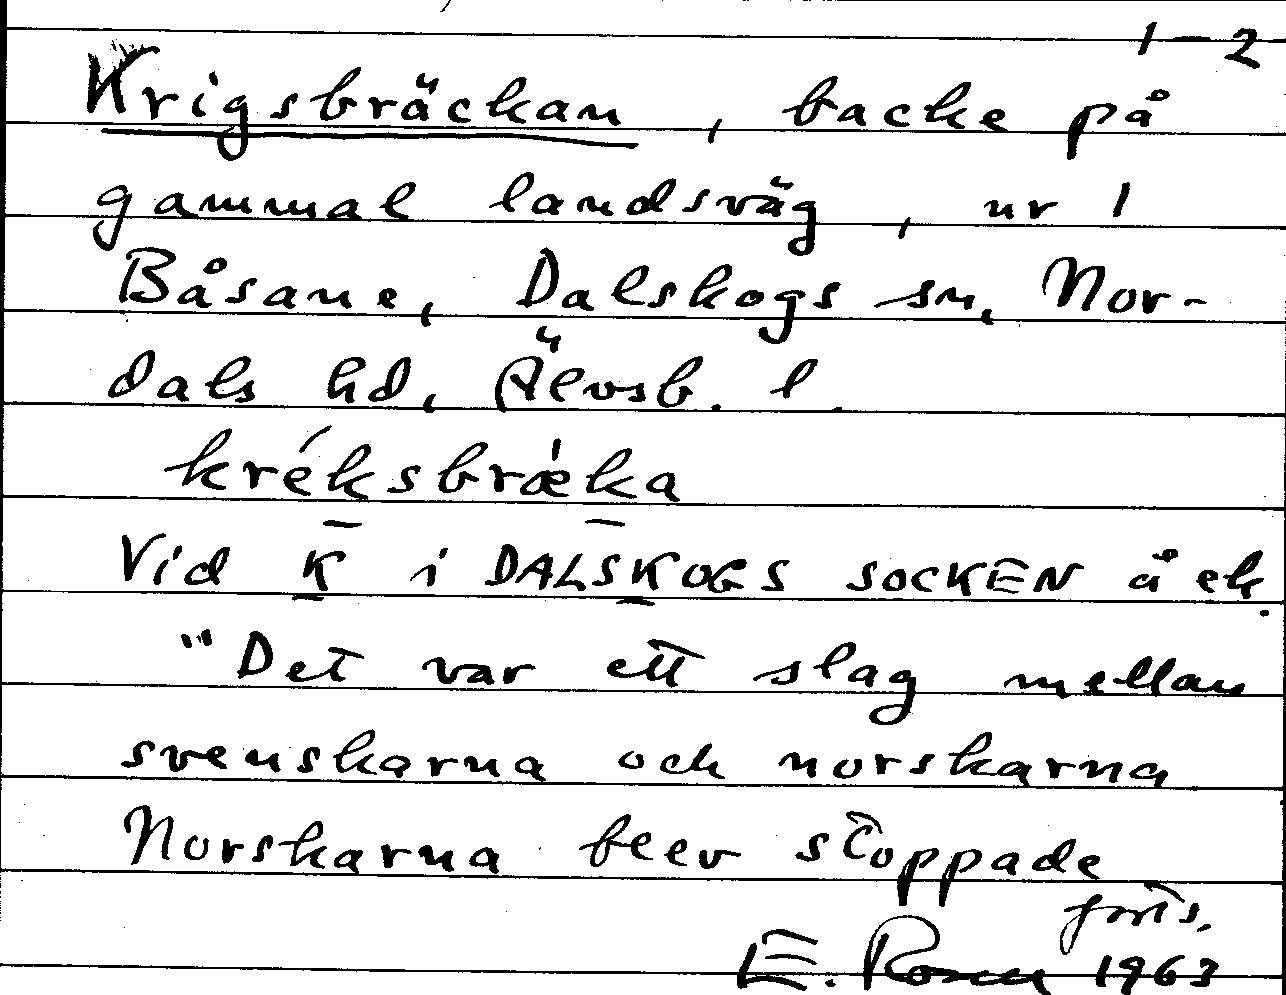 1-2
Krigsbräckan, backe på
gammal landsväg, nr 1
Båsane, Dalskogs sn, Nor-
dals hd, Älvsb. l.
kréksbræ̍ka
Vid K i DALSKOGS SOCKEN å ek.
"Det var ett slag mellan
svenskarna och norskarna
Norskarna blev stoppade
forts.
E. Rosen 1963